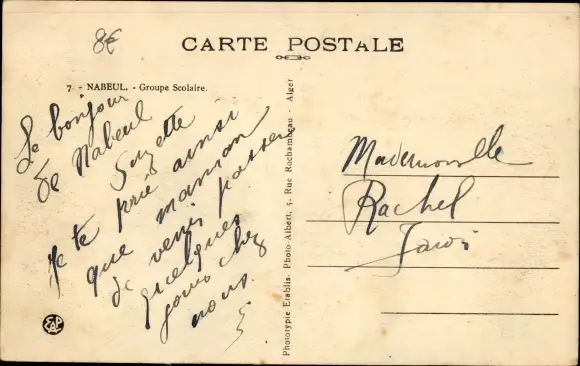 8€
CARTE POSTALE
7 - NABEUL. - Groupe Scolaire.
Le bonjour
de Nabeul
Suzette
Je te prie ainsi
que maman
de venir passer
quelques
jours chez
nous.
Phototypie Etablis. Photo-Albert, 5, Rue Rochambeau - Alger
Mademoiselle
Rachel